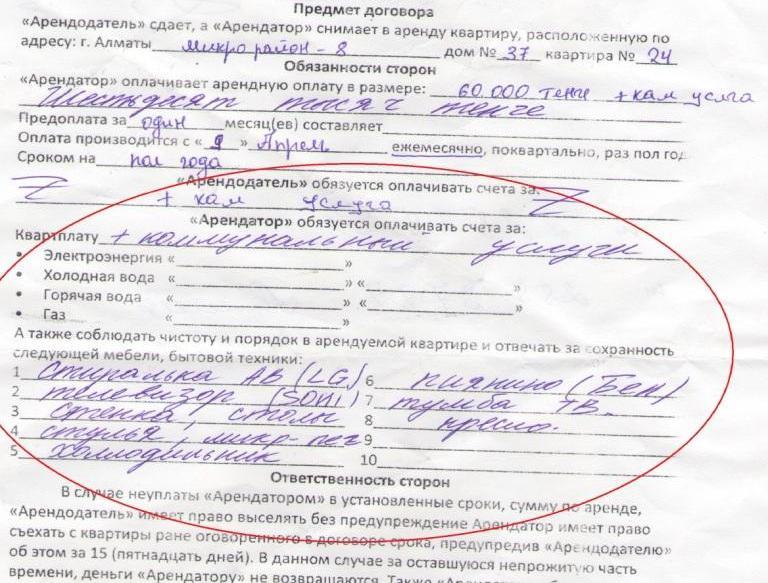 Предмет договора
«Арендодатель» сдает, а «Арендатор» снимает в аренду квартиру, расположенную по
адресу: г. Алматы микрорайон - 8 дом № 37 квартира № 24
Обязанности сторон
«Арендатор» оплачивает арендную оплату в размере: 60.000 тенге + кам услга
Шестьдесят тысяч тенге
Предоплата за один месяц(ев) составляет
Оплата производится с « 9 » Апрель ежемесячно, поквартально, раз пол год
Сроком на пол года
«Арендодатель» обязуется оплачивать счета за:
+ кам услуга
«Арендатор» обязуется оплачивать счета за:
Квартплату + коммунальный услуги
• Электроэнергия « »
• Холодная вода « » « »
• Горячая вода « » « »
• Газ « »
А также соблюдать чистоту и порядок в арендуемой квартире и отвечать за сохранность
следующей мебели, бытовой техники:
1 стиралька АВ (LG) 6 пиянино (Бел)
2 телевизор (SONI) 7 тумба ТВ.
3 стенка, столы 8 кресло.
4 стулья, микр-печ 9
5 холодильник 10
Ответственность сторон
В случае неуплаты «Арендатором» в установленные сроки, сумму по аренде,
«Арендодатель» имеет право выселять без предупреждение Арендатор имеет право
съехать с квартиры ране оговоренного в договоре срока, предупредив «Арендодателю»
об этом за 15 (пятнадцать дней). В данном случае за оставшуюся непрожитую часть
времени, деньги «Арендатору» не возвращаются. Также